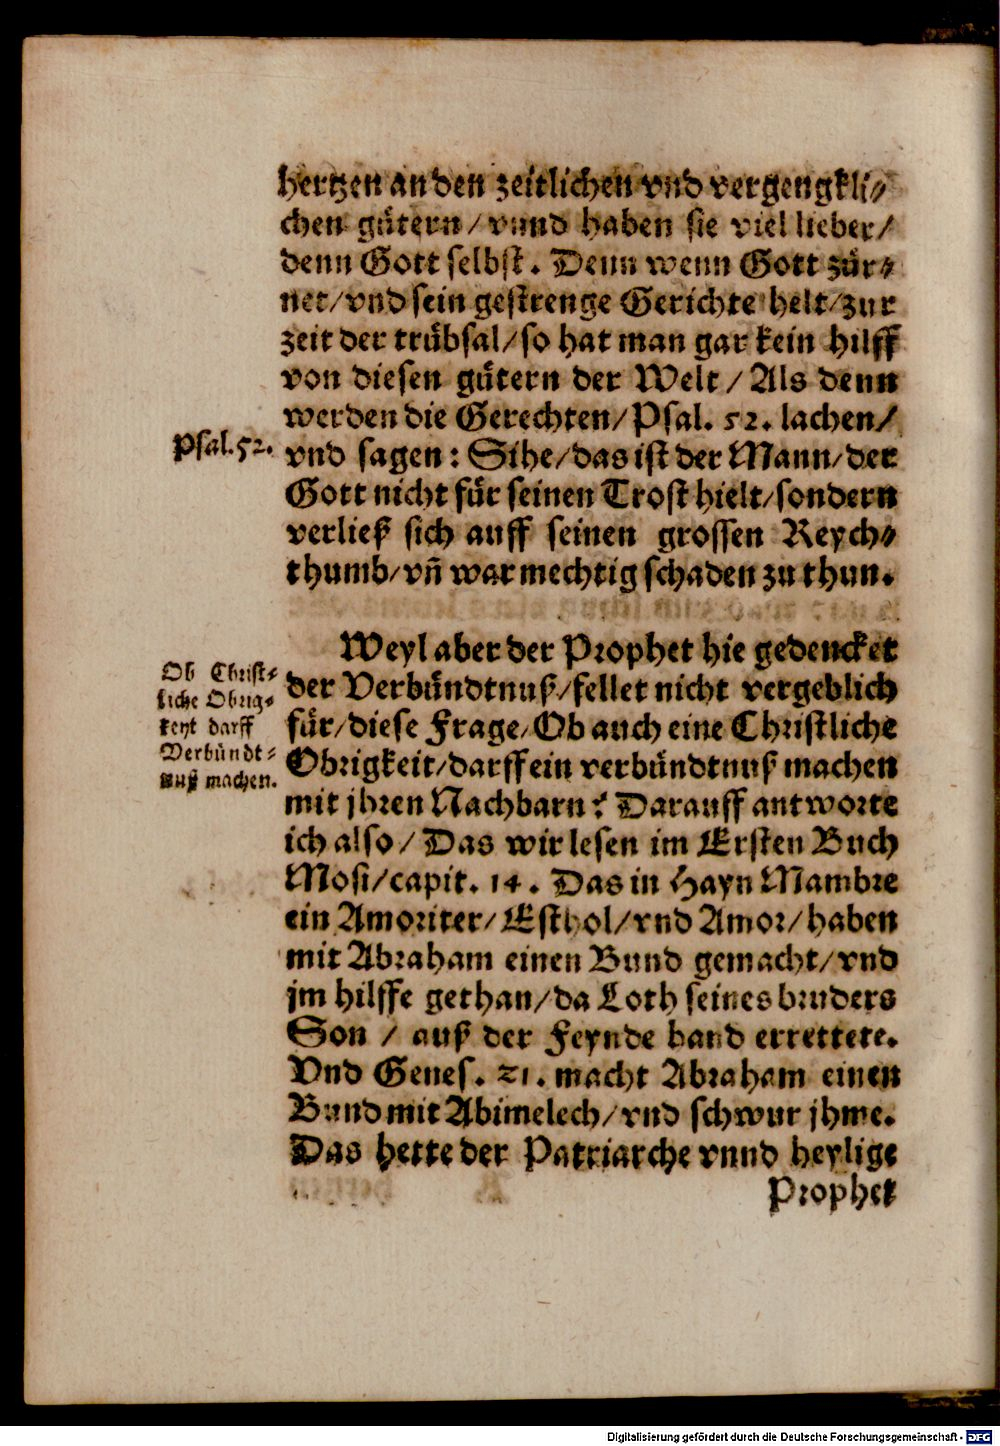 hertzen an den zeitlichen vnd vergengkli⸗
chen guͤtern / vnnd haben sie viel lieber /
denn Gott selbst. Denn wenn Gott zuͤr⸗
net / vnd sein gestrenge Gerichte helt / zur
zeit der truͤbsal / so hat man gar kein hilff
von diesen guͤtern der Welt / Als denn
werden die Gerechten / Psal. 52. lachen /
Psal. 52.
vnd sagen: Sihe / das ist der Mann / der
Gott nicht fuͤr seinen Trost hielt / sondern
verließ sich auff seinen grossen Reych⸗
thumb / vñ war mechtig schaden zu thun.
Weyl aber der Prophet hie gedencket
Ob Christ⸗
liche Obrig⸗
keyt darff
Verbuͤndt⸗
nuß machen.
der Verbuͤndtnuß / fellet nicht vergeblich
fuͤr / diese Frage / Ob auch eine Christliche
Obrigkeit / darff ein verbuͤndtnuß machen
mit jhren Nachbarn? Darauff antworte
ich also / Das wir lesen im Ersten Buch
Mosi / capit. 14. Das in Hayn Mambre
ein Amoriter / Esthol / vnd Amor / haben
mit Abraham einen Bund gemacht / vnd
jm hilffe gethan / da Loth seines bruders
Son / auß der Feynde hand errettete.
Vnd Genes. 21. macht Abraham einen
Bund mit Abimelech / vnd schwur jhme.
Das hette der Patriarche vnnd heylige
Prophet
Digitalisierung gefördert durch die Deutsche Forschungsgemeinschaft - DFG